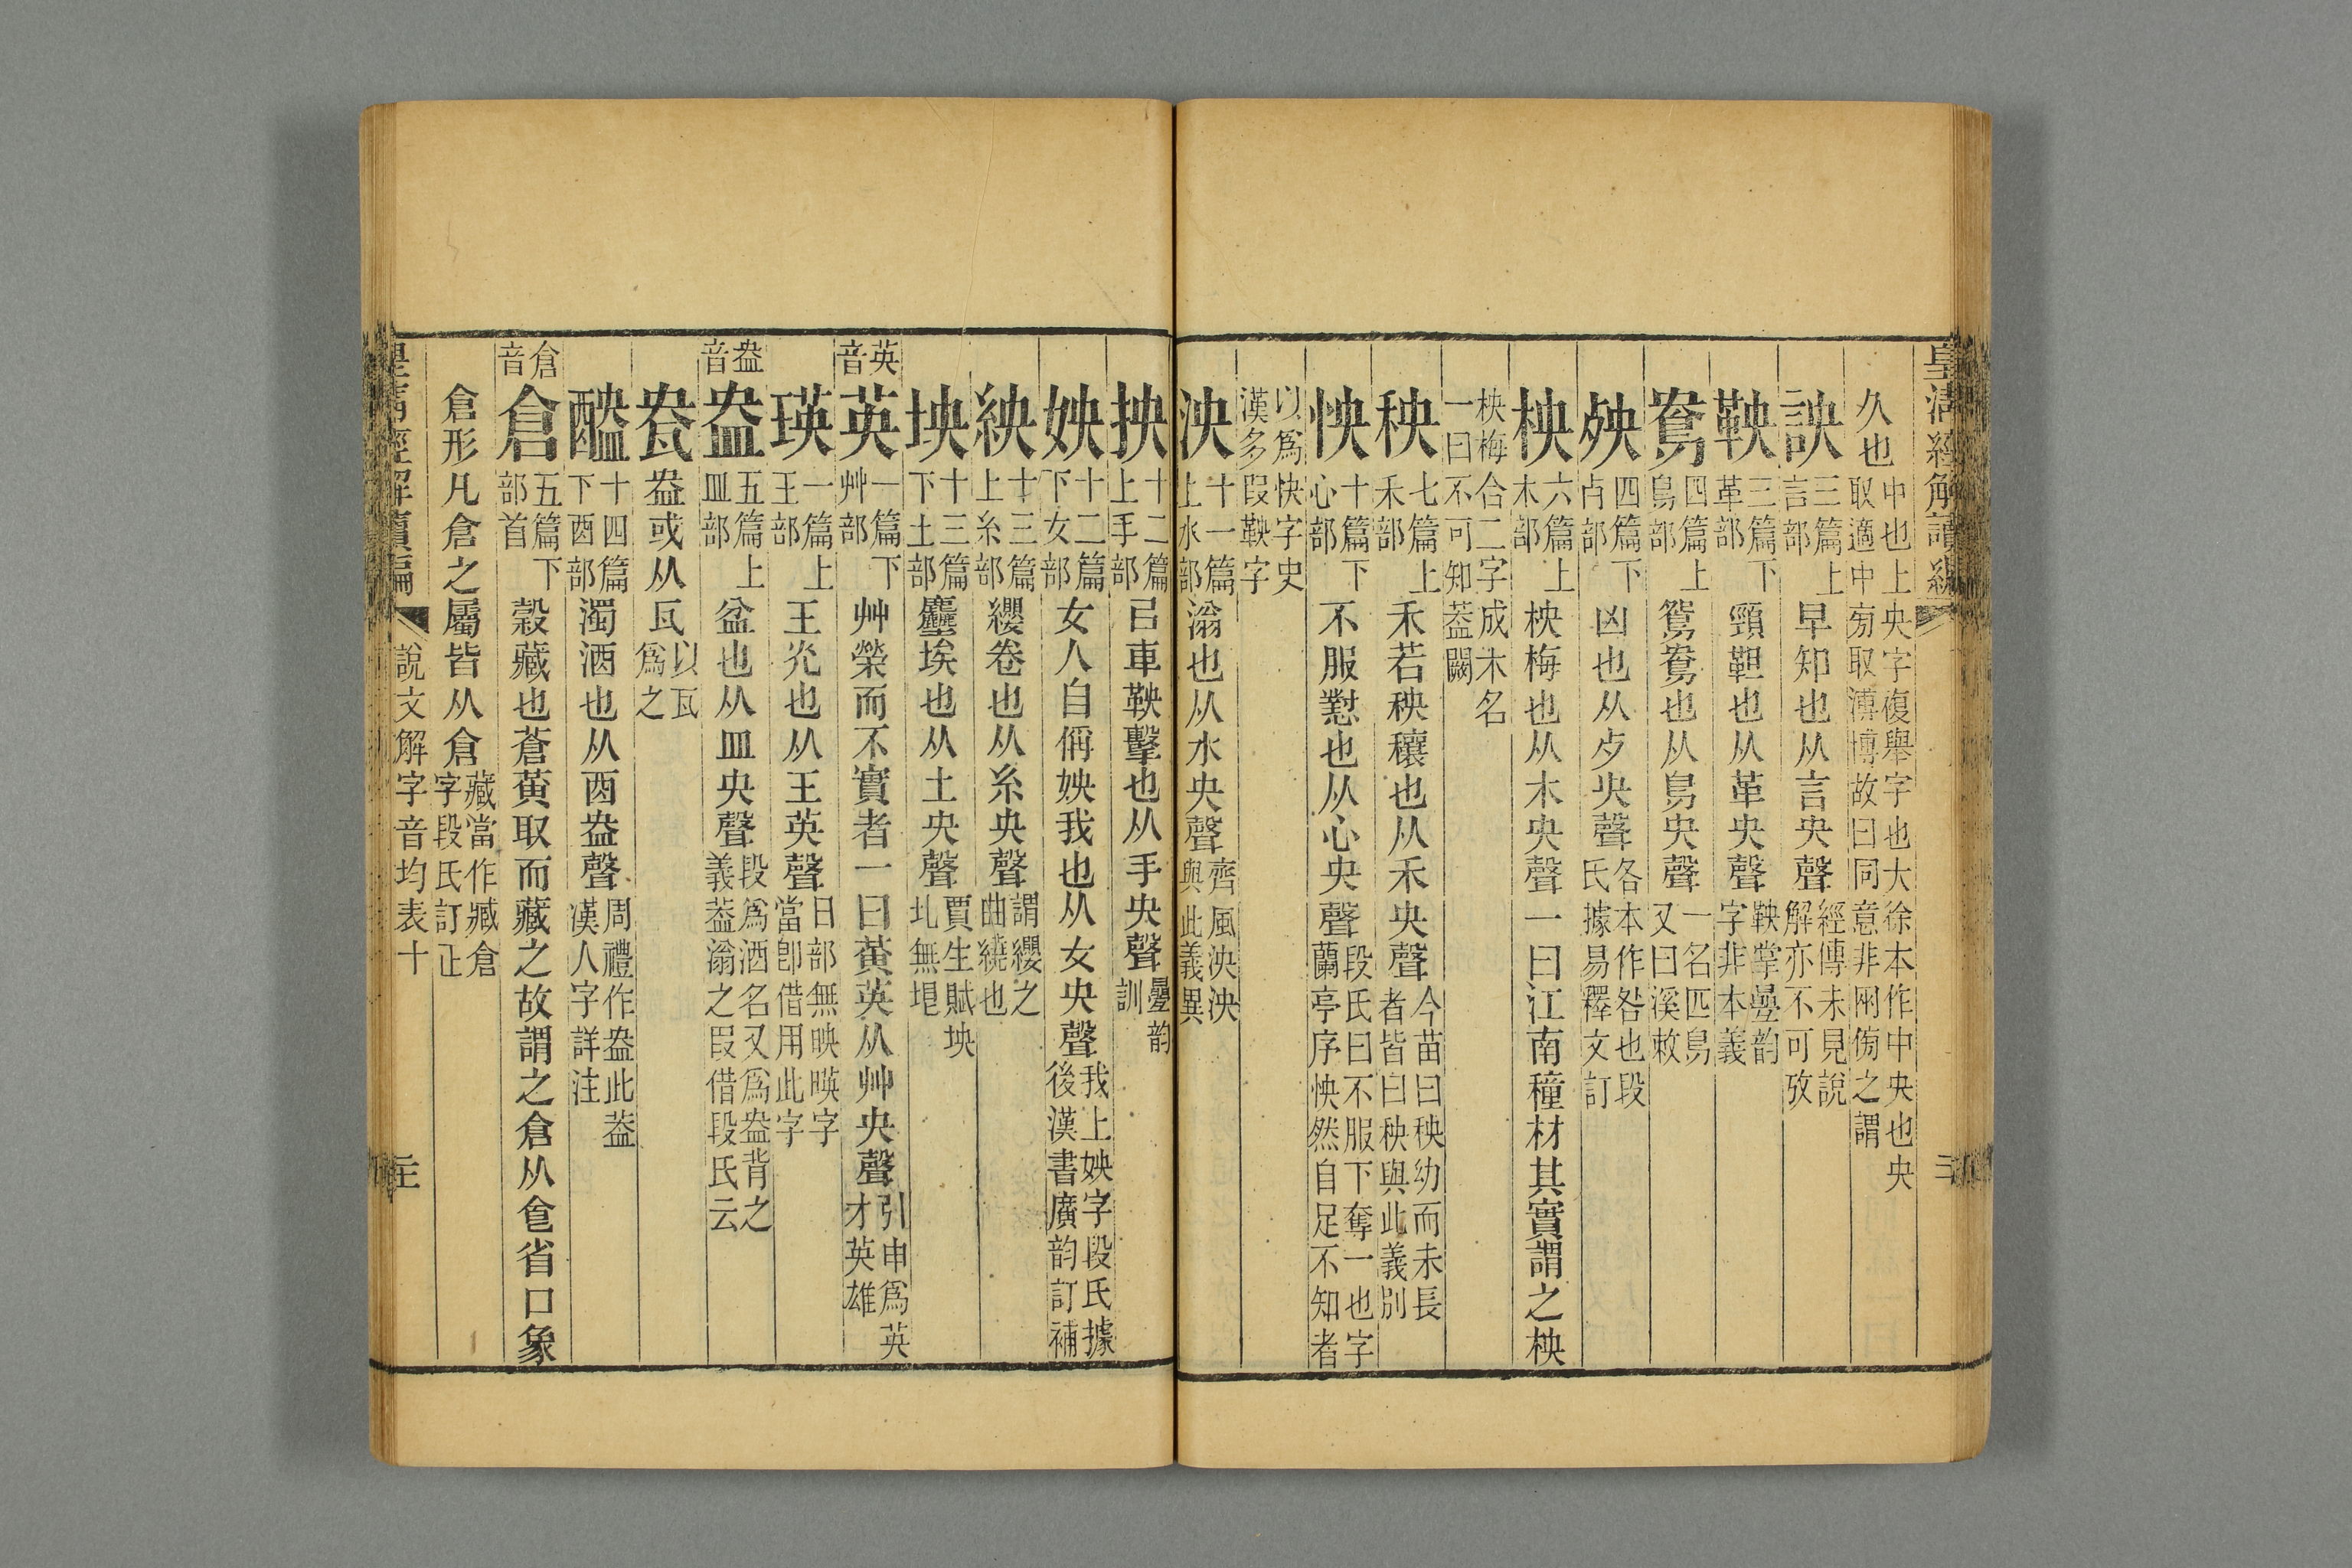 皇清經解續編
久也中也上央字復舉字也大徐本作中央也央取適中㫄取溥博故曰同意非网㑂之謂
訣三篇上言部早知也从言央聲經傳未見說解亦不可攷
鞅三篇下革部頸靼也从革央聲鞅掌疊韵字非本義
鴦四篇上鳥部鴛鴦也从鳥央聲一名匹鳥又曰溪敕
殃四篇下歺部凶也从歺央聲各本作咎也段氏據易釋文訂
柍六篇上木部柍梅也从木央聲一曰江南橦材其實謂之柍
柍梅合二字成木名一曰不可知葢闕
秧七篇上禾部禾若秧穰也从禾央聲今苗曰秧幼而未長者皆曰秧與此義別
怏十篇下心部不服懟也从心央聲段氏曰不服下奪一也字蘭亭序怏然自足不知者
以爲快字史漢多叚鞅字
泱十一篇上水部滃也从水央聲齊風泱泱與此義異
抰十二篇上手部㠯車鞅擊也从手央聲疊韵訓
姎十二篇下女部女人自偁姎我也从女央聲我上姎字段氏據後漢書廣韵訂補
紻十三篇上糸部纓卷也从糸央聲謂纓之曲繞也
坱十三篇下土部塵埃也从土央聲賈生賦坱圠無垠
英音英一篇下艸部艸榮而不實者一曰黃英从艸央聲引申爲英才英雄
瑛一篇上王部王光也从王英聲日部無映暎字當卽借用此字
盎音盎五篇上皿部盆也从皿央聲段爲酒名又爲盎背之義葢滃之叚借段氏云
㼜盎或从瓦以瓦爲之
醠十四篇下酉部濁酒也从酉盎聲周禮作盎此葢漢人字詳注
倉音倉五篇下部首穀藏也蒼黃取而藏之故謂之倉从食省口象
倉形凡倉之屬皆从倉藏當作臧倉字段氏訂正
皇清經解續編 說文解字音均表十 主